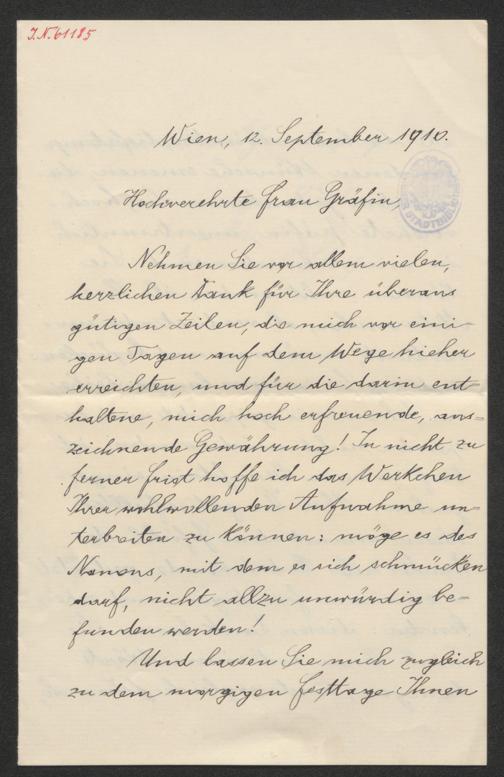 J.N. 61185
Wien, 12. September 1910.
STADTBIBLIOTHEK
Hochverehrte Frau Gräfin,
Nehmen Sie vor allem vielen,
herzlichen Dank für Ihre überaus
gütigen Zeilen, die mich vor eini-
gen Tagen auf dem Wege hieher
erreichten, und für die darin ent-
haltene, mich hoch erfreuende, aus-
zeichnende Gewährung! In nicht zu
ferner Frist hoffe ich das Werkchen
Ihrer wohlwollenden Aufnahme un-
terbreiten zu können: möge es des
Namens, mit dem es sich schmücken
darf, nicht allzu unwürdig be-
funden werden!
Und lassen Sie mich zugleich
zu dem morgigen Festtage Ihnen